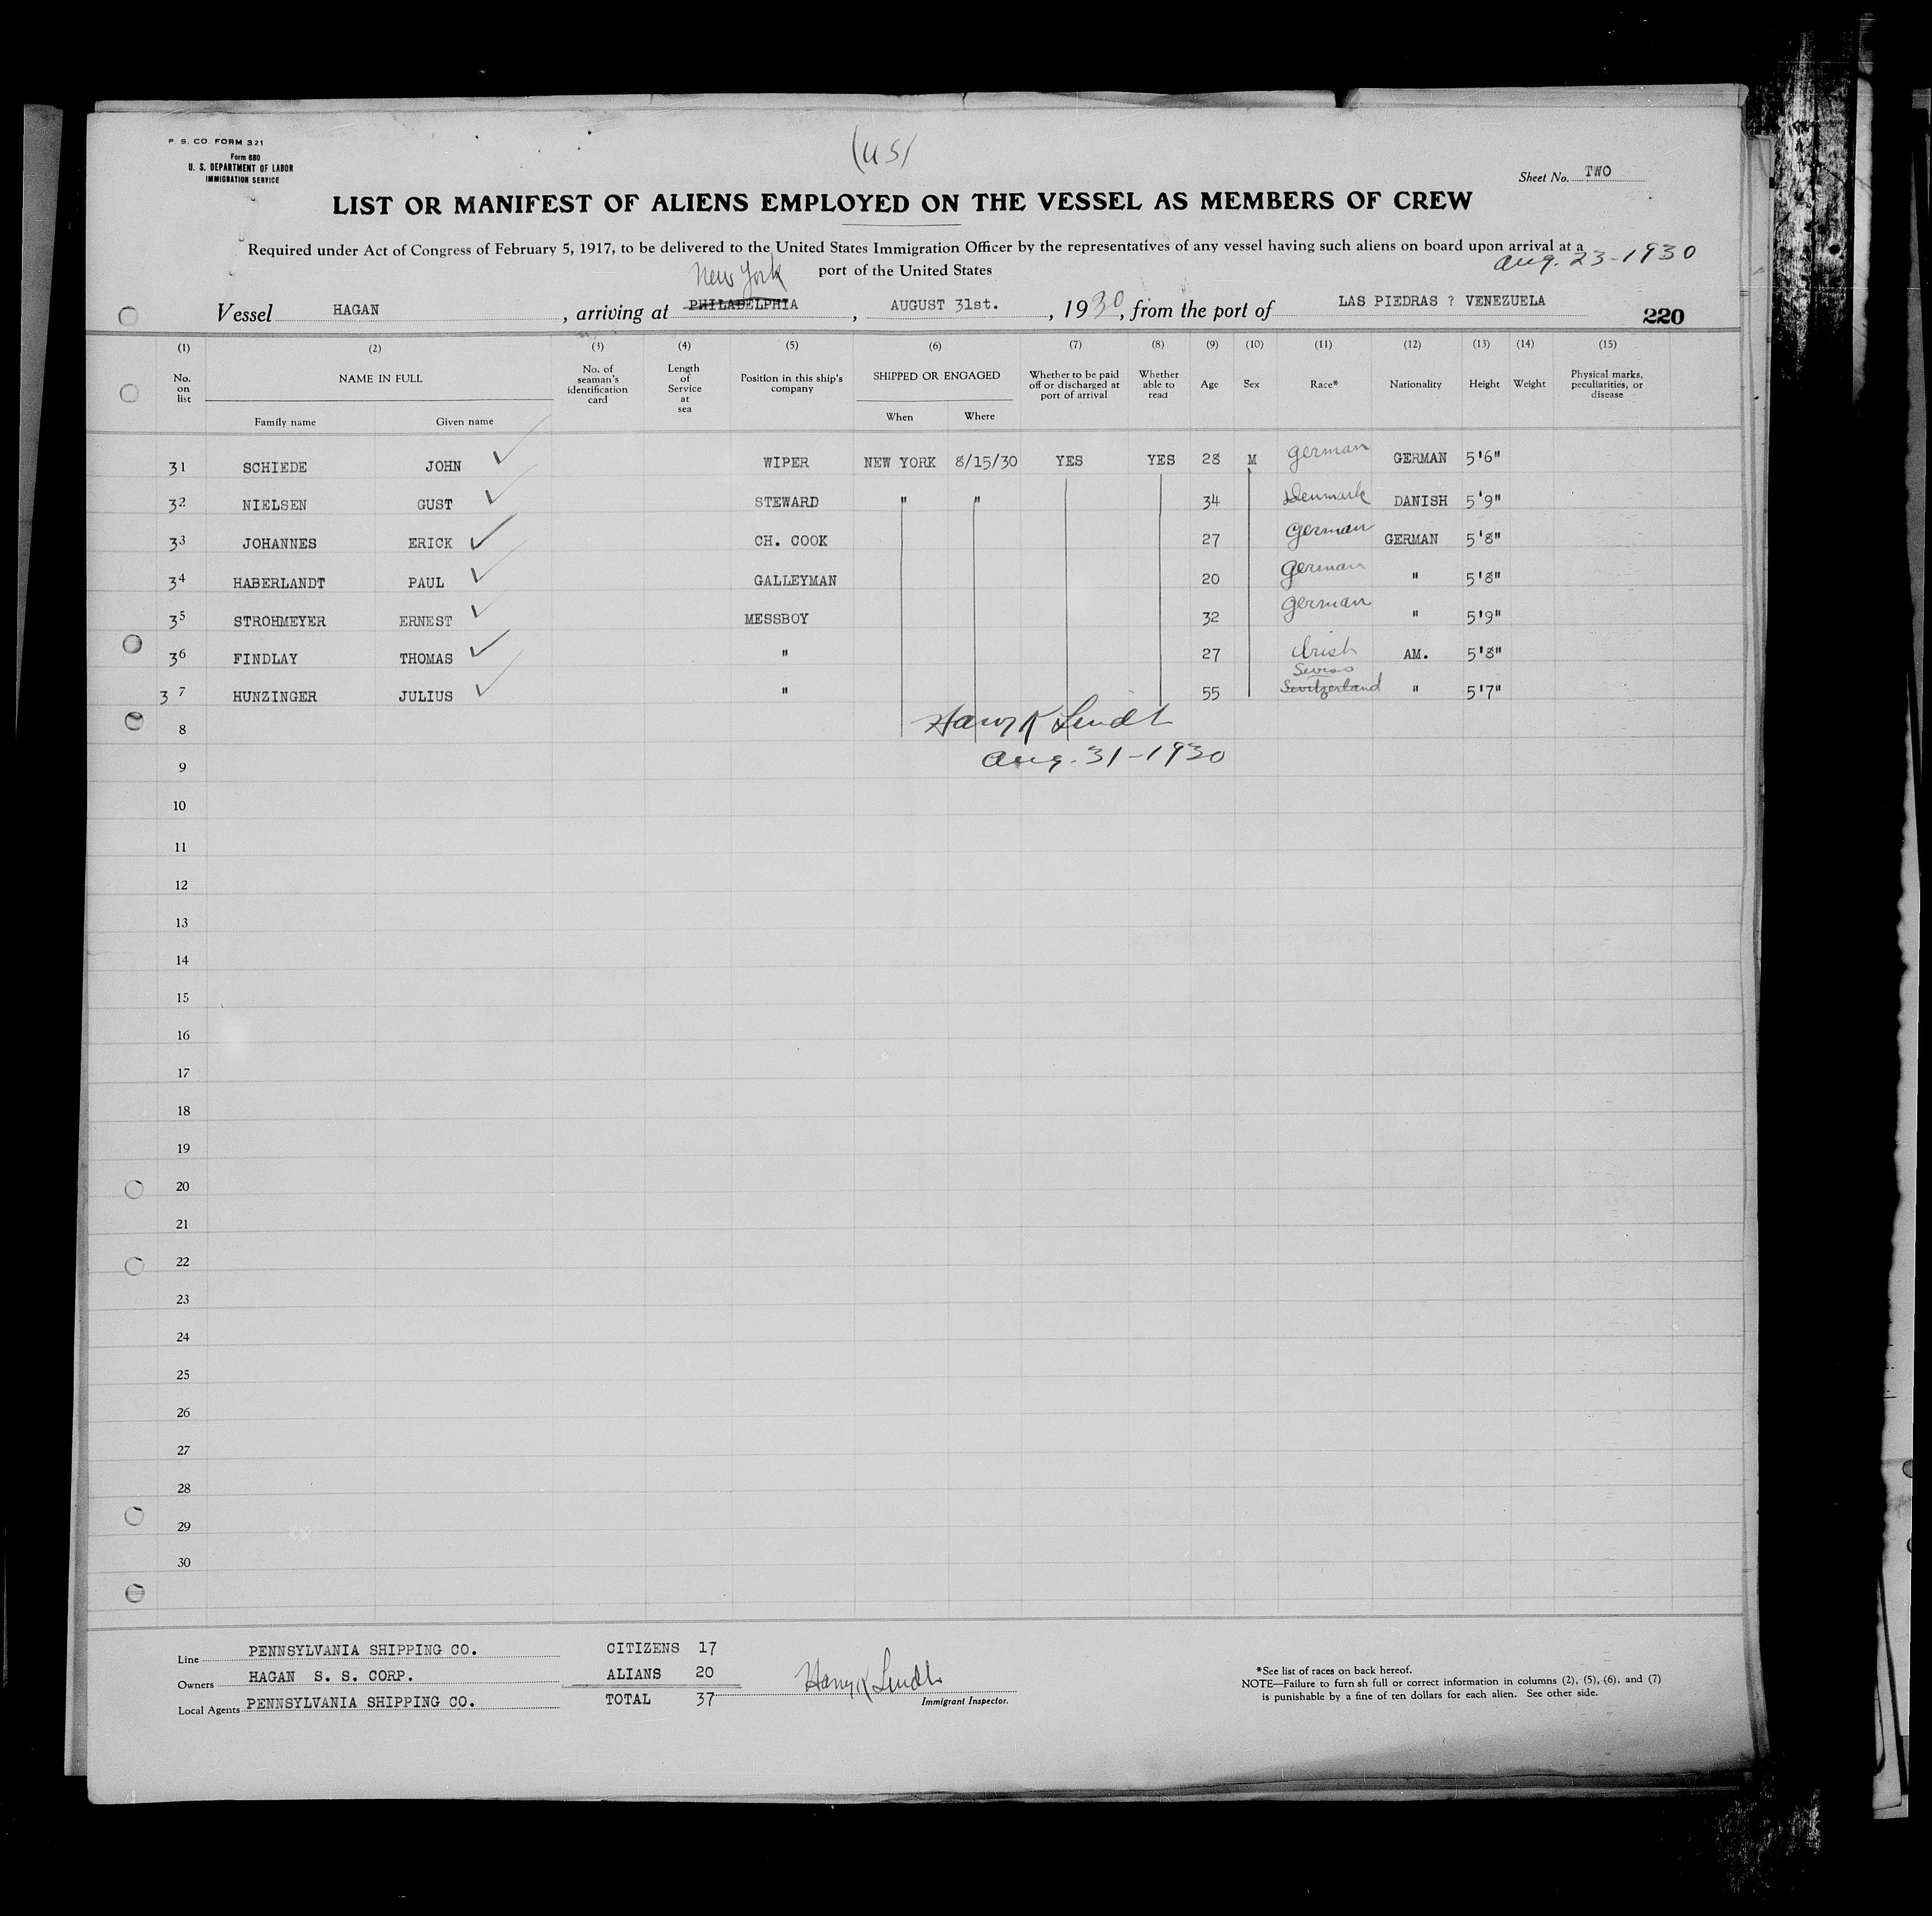 P. S. CO. FORM 321
Form 680
U. S. DEPARTMENT OF LABOR
IMMIGRATION SERVICE
(US)
Sheet No. TWO
LIST OR MANIFEST OF ALIENS EMPLOYED ON THE VESSEL AS MEMBERS OF CREW
Required under Act of Congress of February 5, 1917, to be delivered to the United States Immigration Officer by the representatives of any vessel having such aliens on board upon arrival at a
port of the United States
Aug. 23-1930
New York
Vessel HAGAN, arriving at PHILADELPHIA, AUGUST 31st., 1930, from the port of LAS PIEDRAS ? VENEZUELA 220
(1) (2) (3) (4) (5) (6) (7) (8) (9) (10) (11) (12) (13) (14) (15)
No. on list NAME IN FULL Family name Given name No. of seaman's identification card Length of Service at sea Position in this ship's company SHIPPED OR ENGAGED When Where Whether to be paid off or discharged at port of arrival Whether able to read Age Sex Race* Nationality Height Weight Physical marks, peculiarities, or disease
31 SCHIEDE JOHN WIPER NEW YORK 8/15/30 YES YES 28 M German GERMAN 5'6"
32 NIELSEN GUST STEWARD " " 34 Denmark DANISH 5'9"
33 JOHANNES ERICK CH. COOK 27 German GERMAN 5'8"
34 HABERLANDT PAUL GALLEYMAN 20 German " 5'8"
35 STROHMEYER ERNEST MESSBOY 32 German " 5'9"
36 FINDLAY THOMAS " 27 Irish AM. 5'8"
Swiss
37 HUNZINGER JULIUS " 55 Switzerland " 5'7"
8 Harry K Lindt
9 Aug. 31-1930
10
11
12
13
14
15
16
17
18
19
20
21
22
23
24
25
26
27
28
29
30
Line PENNSYLVANIA SHIPPING CO. CITIZENS 17
Owners HAGAN S. S. CORP. ALIANS 20
Local Agents PENNSYLVANIA SHIPPING CO. TOTAL 37
Harry K Lindt
Immigrant Inspector.
*See list of races on back hereof.
NOTE—Failure to furn sh full or correct information in columns (2), (5), (6), and (7)
is punishable by a fine of ten dollars for each alien. See other side.